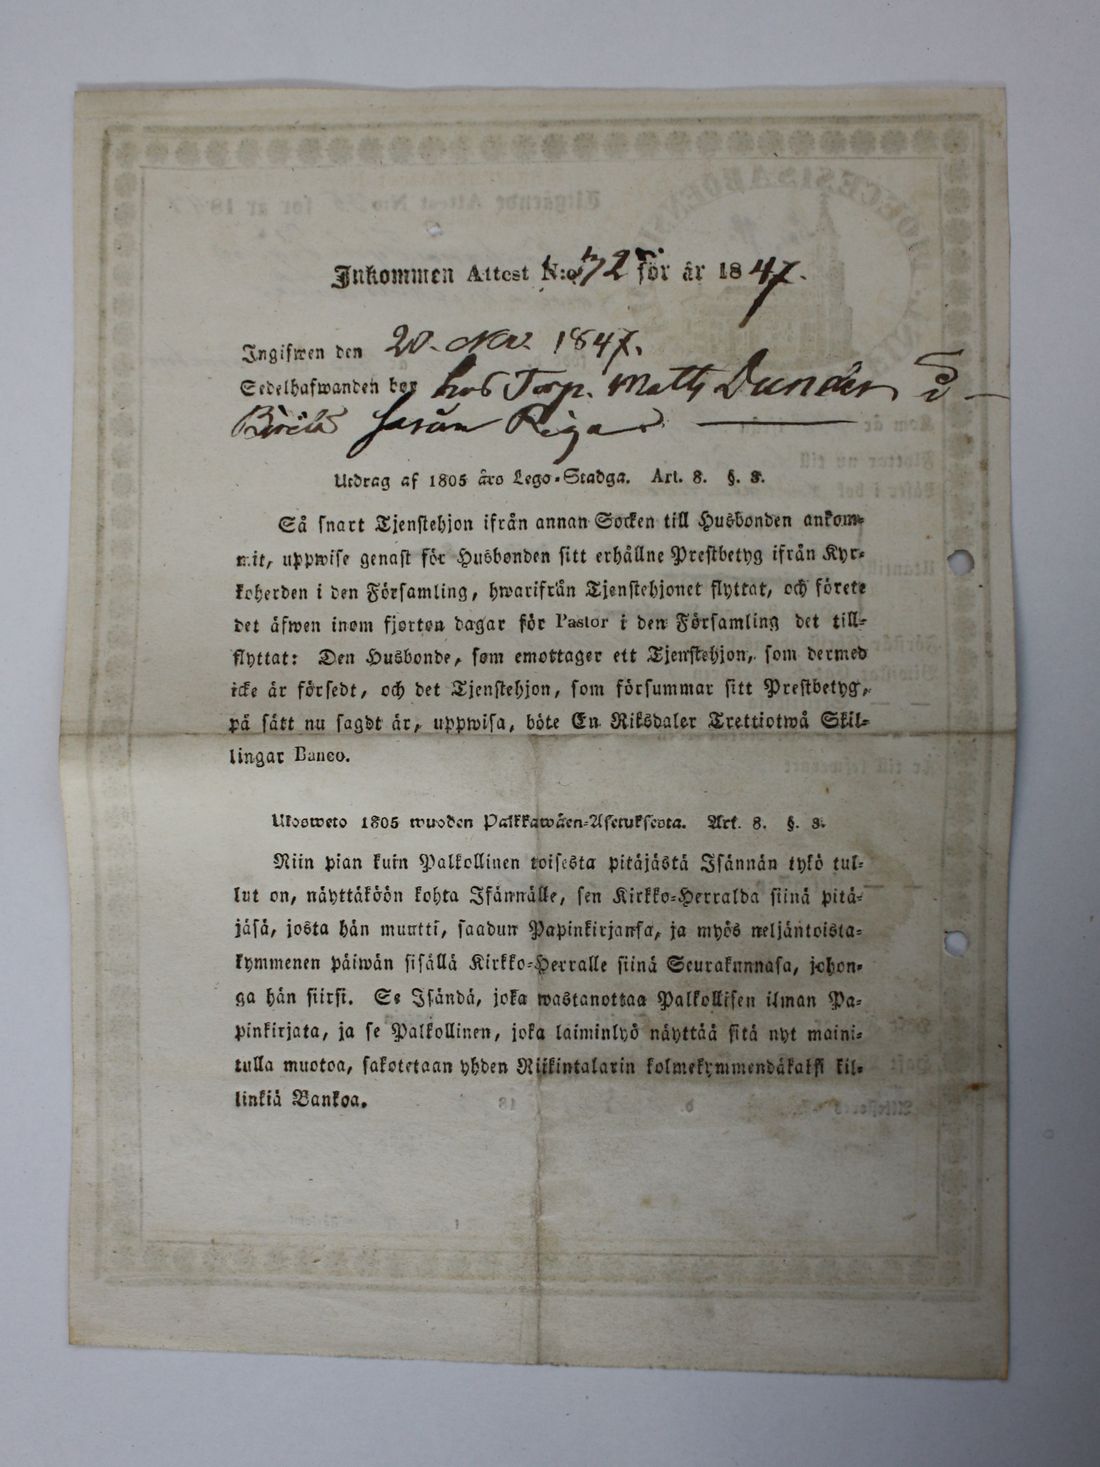 Inkommen Attest N:o 72 för år 1847.
Ingifwen den 20. Nov. 1847.
Sedelhafwanden bor hos Torp. Matts Dunder
Utdrag af 1805 års Lego-Stadga. Art. 8. §. 3.
Så snart Tjenstehjon ifrån annan Socken till Husbonden ankom-
mit, uppwise genast för Husbonden sitt erhållne Prestbetyg ifrån Kyr-
koherden i den Församling, hwarifrån Tjenstehjonet flyttat, och förete
det äfwen inom fjorton dagar för Pastor i den Församling det till-
flyttat: Den Husbonde, som emottager ett Tjenstehjon, som dermed
icke är försedt, och det Tjenstehjon, som försummar sitt Prestbetyg,
på sätt nu sagdt är, uppwisa, böte En Riksdaler Trettiotwå Skil-
lingar Banco.
Ulosweto 1805 wuoden Palkkawäen-Asetuksesta. Art. 8. §. 3.
Niin pian kuin Palkollinen toisesta pitäjästä Isännän tykö tul-
lut on, näyttäköön kohta Isännälle, sen Kirkko-Herralda siinä pitä-
jäsä, josta hän muutti, saadun Papinkirjansa, ja myös neljäntoista-
kymmenen päiwän sisällä Kirkko-Herralle siinä Seurakunnasa, johon-
ga hän siirsi. Se Isändä, joka wastanottaa Palkollisen ilman Pa-
pinkirjata, ja se Palkollinen, joka laiminlyö näyttää sitä nyt maini-
tulla muotoa, sakotetaan yhden Riikintalarin kolmekymmendäkaksi kil-
linkiä Bankoa.